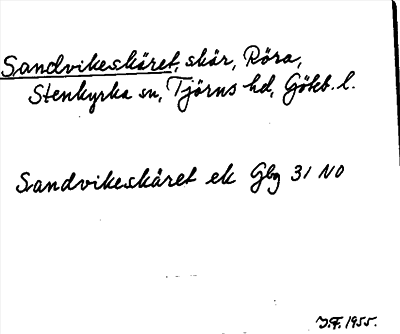 Sandvikeskäret, skär, Röra,
Stenkyrka sn, Tjörns hd, Göteb. l.
Sandvikeskäret ek Gbg 31 NO
J.F. 1955.